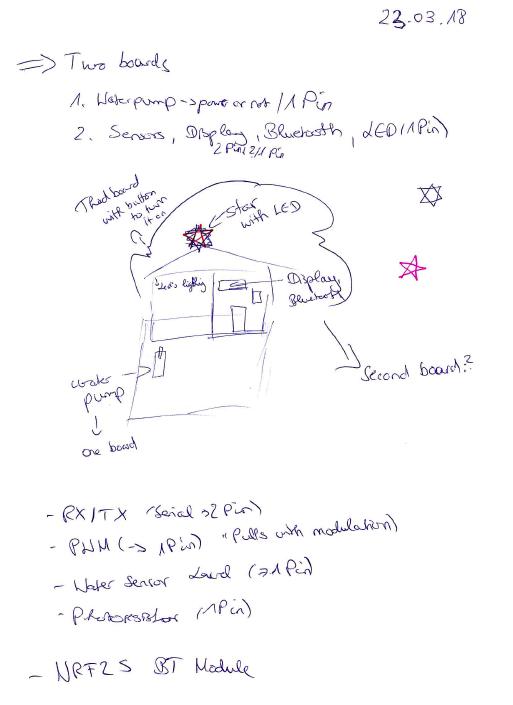 23.03.18
=> Two boards
1. Waterpump -> power or not / 1 Pin
2. Sensors, Display, Bluetooth, LED (1 Pin)
2 Pin/2/1 Pin
Third board
with button
to turn
it on
Star
with LED
lighting
Display,
Bluetooth
water
pump
one board
Second board?
- RX/TX (Serial -> 2 Pin)
- PWM (-> 1 Pin) "Pulls with modulation)
- Water Sensor Level (-> 1 Pin)
- Photoresistor (1 Pin)
- NRF25 BT Module